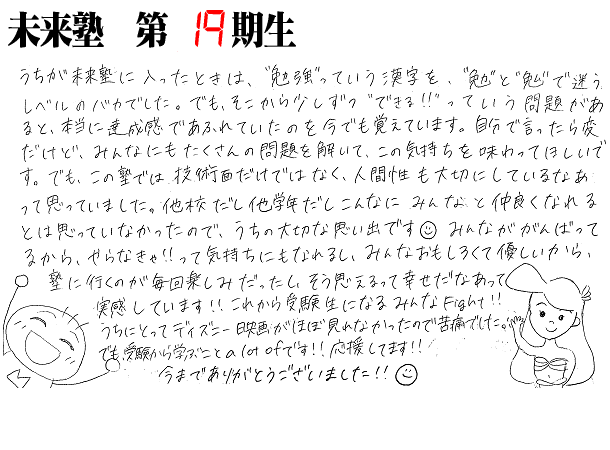 未来塾 第19期生
うちが未来塾に入ったときは、"勉強"っていう漢字を、"勉"と"勉"で迷う
レベルのバカでした。でも、そこから少しずつ"できる!!"っていう問題があ
ると、本当に達成感であふれていたのを今でも覚えています。自分で言ったら変
だけど、みんなにもたくさんの問題を解いて、この気持ちを味わってほしいで
す。でも、この塾では技術面だけではなく、人間性も大切にしているなあ
って思っていました。他校だし他学年だしこんなにみんなと仲良くなれる
とは思っていなかったので、うちの大切な思い出です みんながんばって
るから、やらなきゃ!!って気持ちにもなれるし、みんなおもしろくて優しいから、
塾に行くのが毎回楽しみだったし、そう思えるって幸せだなあって
実感しています!! これから受験生になるみんなFight!!
うちにとってディズニー映画がほぼ見れなかったので苦痛でした。
でも受験から学ぶことa lot ofです!! 応援してます!!
今までありがとうございました!!